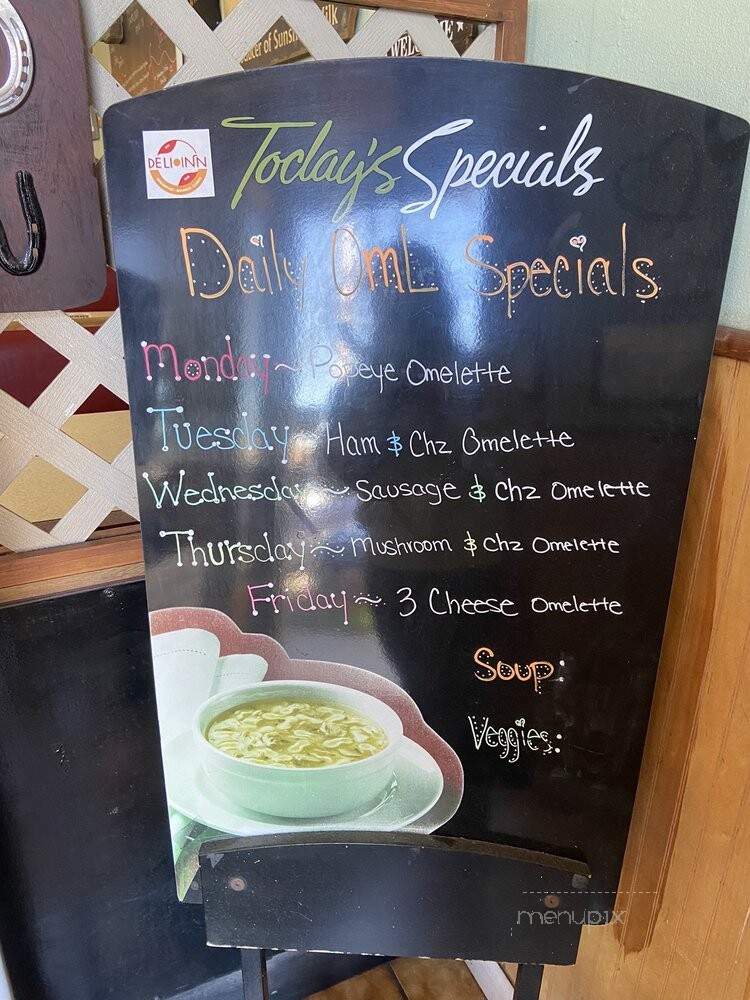 cer of Sunsh
Milk
WELCOME
DELI INN
Today's Specials
Daily OmL Specials
Monday ~ Popeye Omelette
Tuesday ~ Ham & Chz Omelette
Wednesday ~ Sausage & Chz Omelette
Thursday ~ Mushroom & Chz Omelette
Friday ~ 3 Cheese Omelette
Soup:
Veggies:
menupix